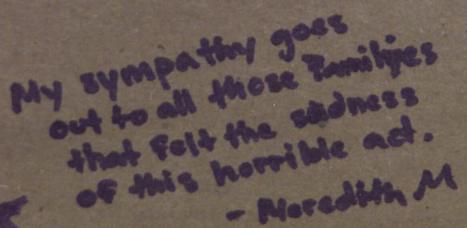 My sympathy goes
out to all those families
that felt the sadness
of this horrible act.
- Meredith M